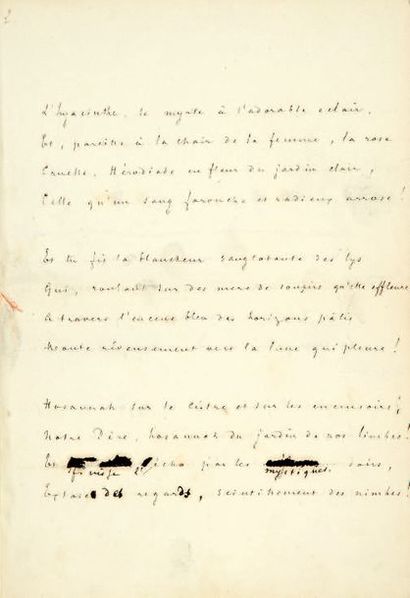 2
L'hyacinthe, le myrte à l'adorable éclair,
Et, pareille à la chair de la femme, la rose
Cruelle, Hérodiade en fleur du jardin clair,
Celle qu'un sang farouche et radieux arrose !
Et tu fis la blancheur sanglotante des lys
Qui, roulant sur des mers de soupirs qu'elle effleure
A travers l'encens bleu des horizons pâlis
Monte rêveusement vers la lune qui pleure !
Hosannah sur le cistre et sur les encensoirs,
Notre Père, hosannah du jardin de nos limbes !
Et finisse l'écho par les mystiques soirs,
Extase des regards, scintillement des nimbes !